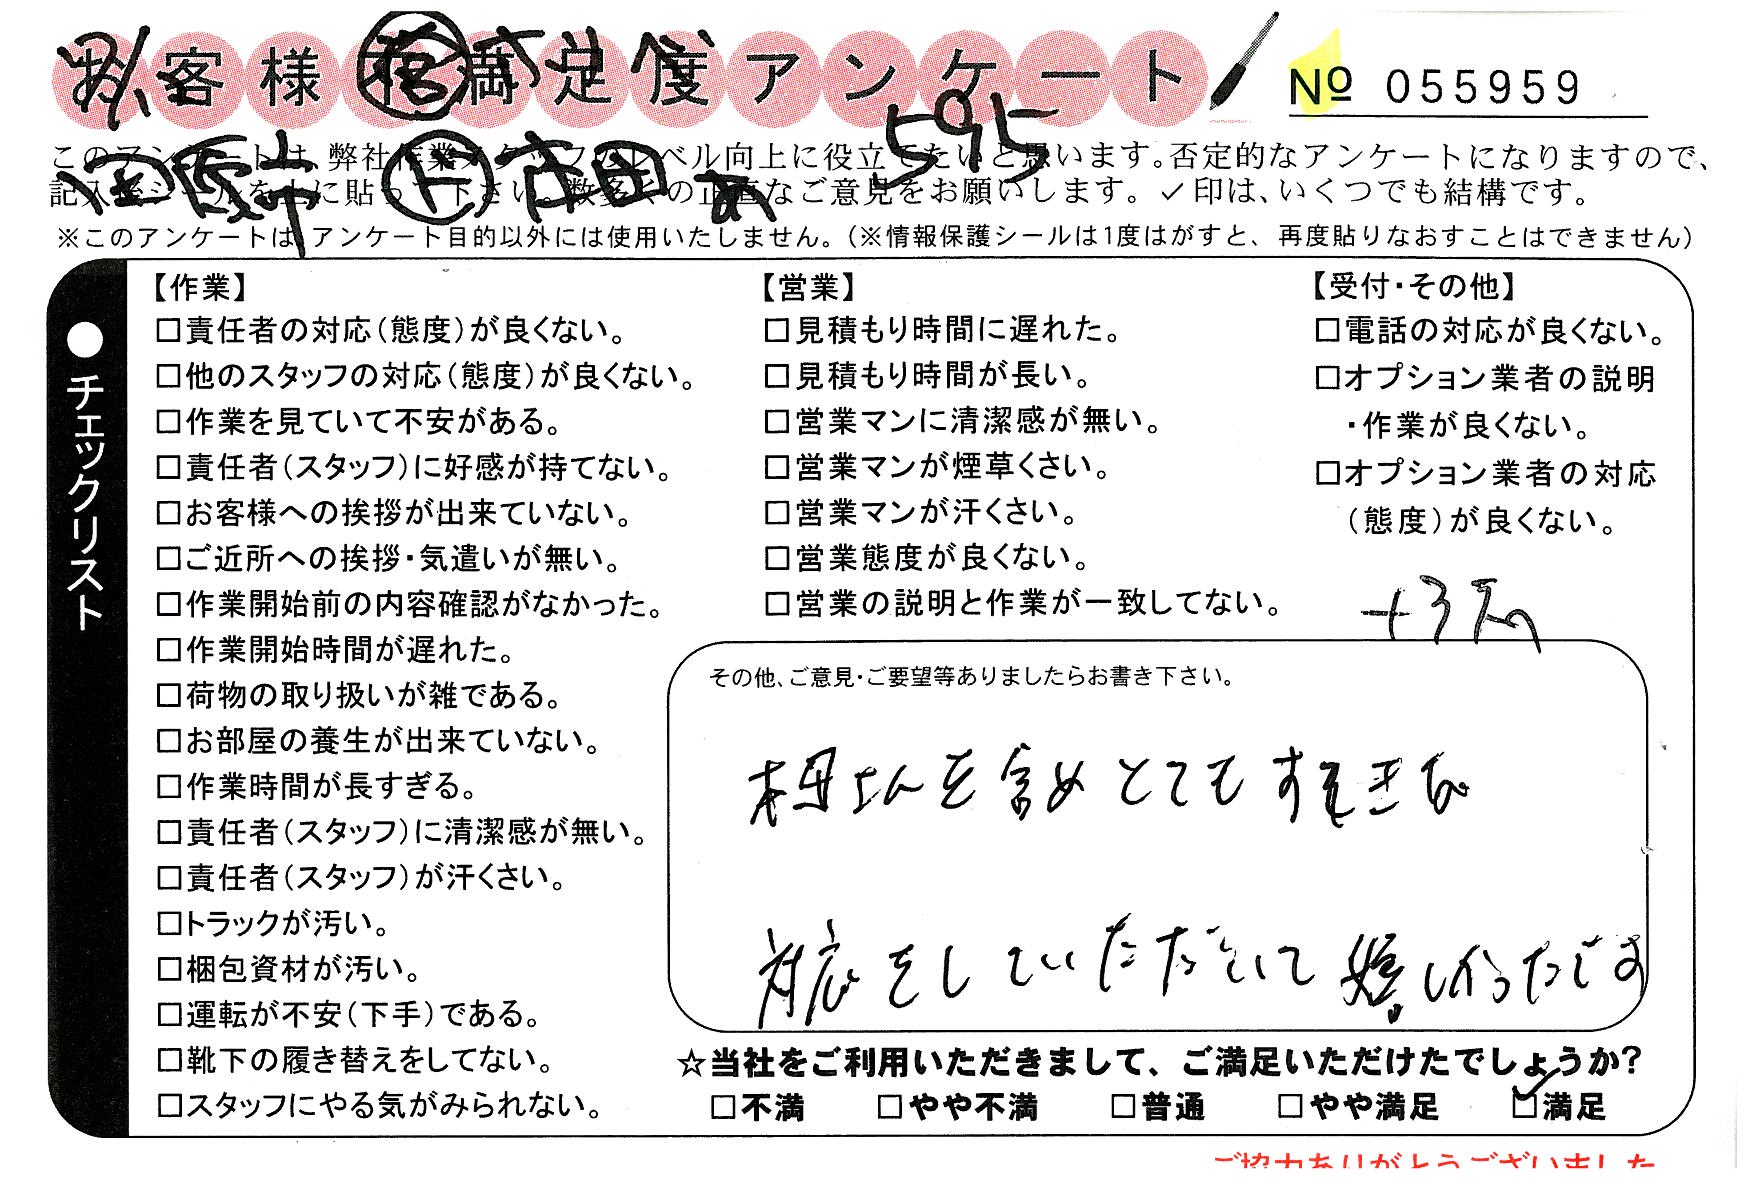 お客様満足度アンケート
No 055959
595
このアンケートは、弊社作業スタッフのレベル向上に役立てたいと思います。否定的なアンケートになりますので、
記入後シールを上に貼って下さい。数多くの正直なご意見をお願いします。✓印は、いくつでも結構です。
※このアンケートは、アンケート目的以外には使用いたしません。(※情報保護シールは1度はがすと、再度貼りなおすことはできません)
●チェックリスト
【作業】
□責任者の対応(態度)が良くない。
□他のスタッフの対応(態度)が良くない。
□作業を見ていて不安がある。
□責任者(スタッフ)に好感が持てない。
□お客様への挨拶が出来ていない。
□ご近所への挨拶・気遣いが無い。
□作業開始前の内容確認がなかった。
□作業開始時間が遅れた。
□荷物の取り扱いが雑である。
□お部屋の養生が出来ていない。
□作業時間が長すぎる。
□責任者(スタッフ)に清潔感が無い。
□責任者(スタッフ)が汗くさい。
□トラックが汚い。
□梱包資材が汚い。
□運転が不安(下手)である。
□靴下の履き替えをしてない。
□スタッフにやる気がみられない。
【営業】
□見積もり時間に遅れた。
□見積もり時間が長い。
□営業マンに清潔感が無い。
□営業マンが煙草くさい。
□営業マンが汗くさい。
□営業態度が良くない。
□営業の説明と作業が一致してない。
【受付・その他】
□電話の対応が良くない。
□オプション業者の説明
・作業が良くない。
□オプション業者の対応
(態度)が良くない。
その他、ご意見・ご要望等ありましたらお書き下さい。
さんを含めとてもすてきな
対応をしていただいて嬉しかったです
☆当社をご利用いただきまして、ご満足いただけたでしょうか?
□不満 □やや不満 □普通 □やや満足 ☑満足
ご協力ありがとうございました